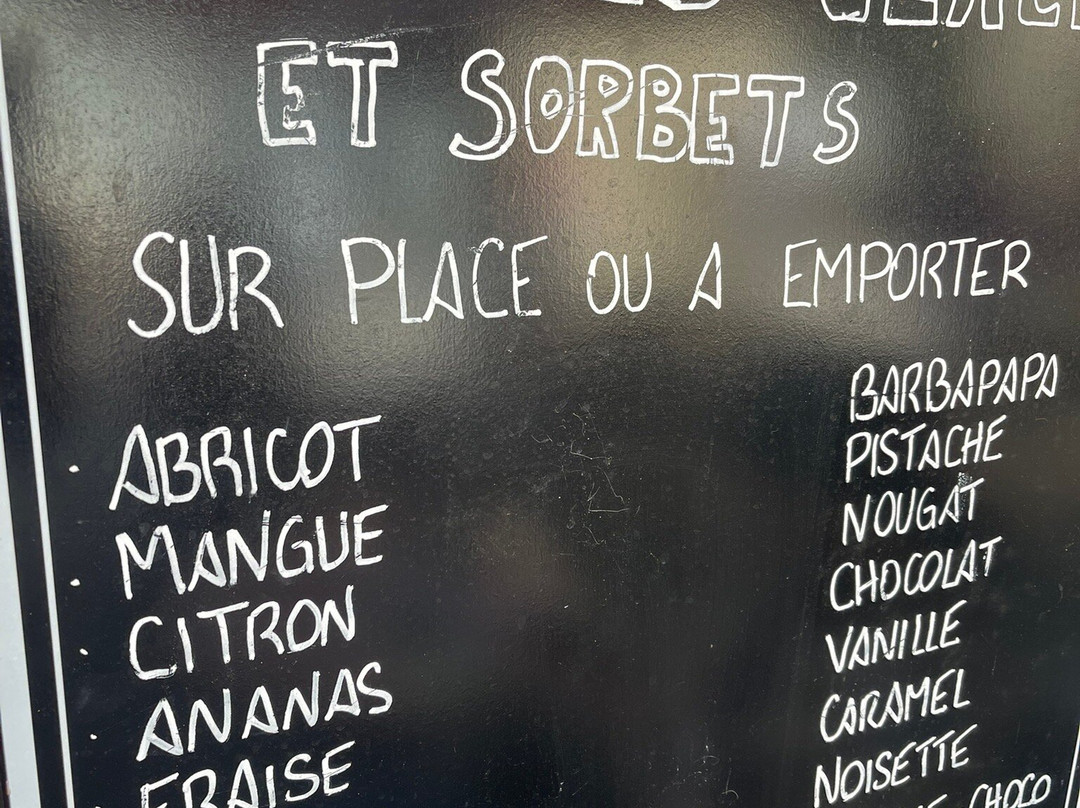 ET SORBETS
SUR PLACE OU A EMPORTER
ABRICOT
MANGUE
CITRON
ANANAS
FRAISE
BARBAPAPA
PISTACHE
NOUGAT
CHOCOLAT
VANILLE
CARAMEL
NOISETTE
CHOCO